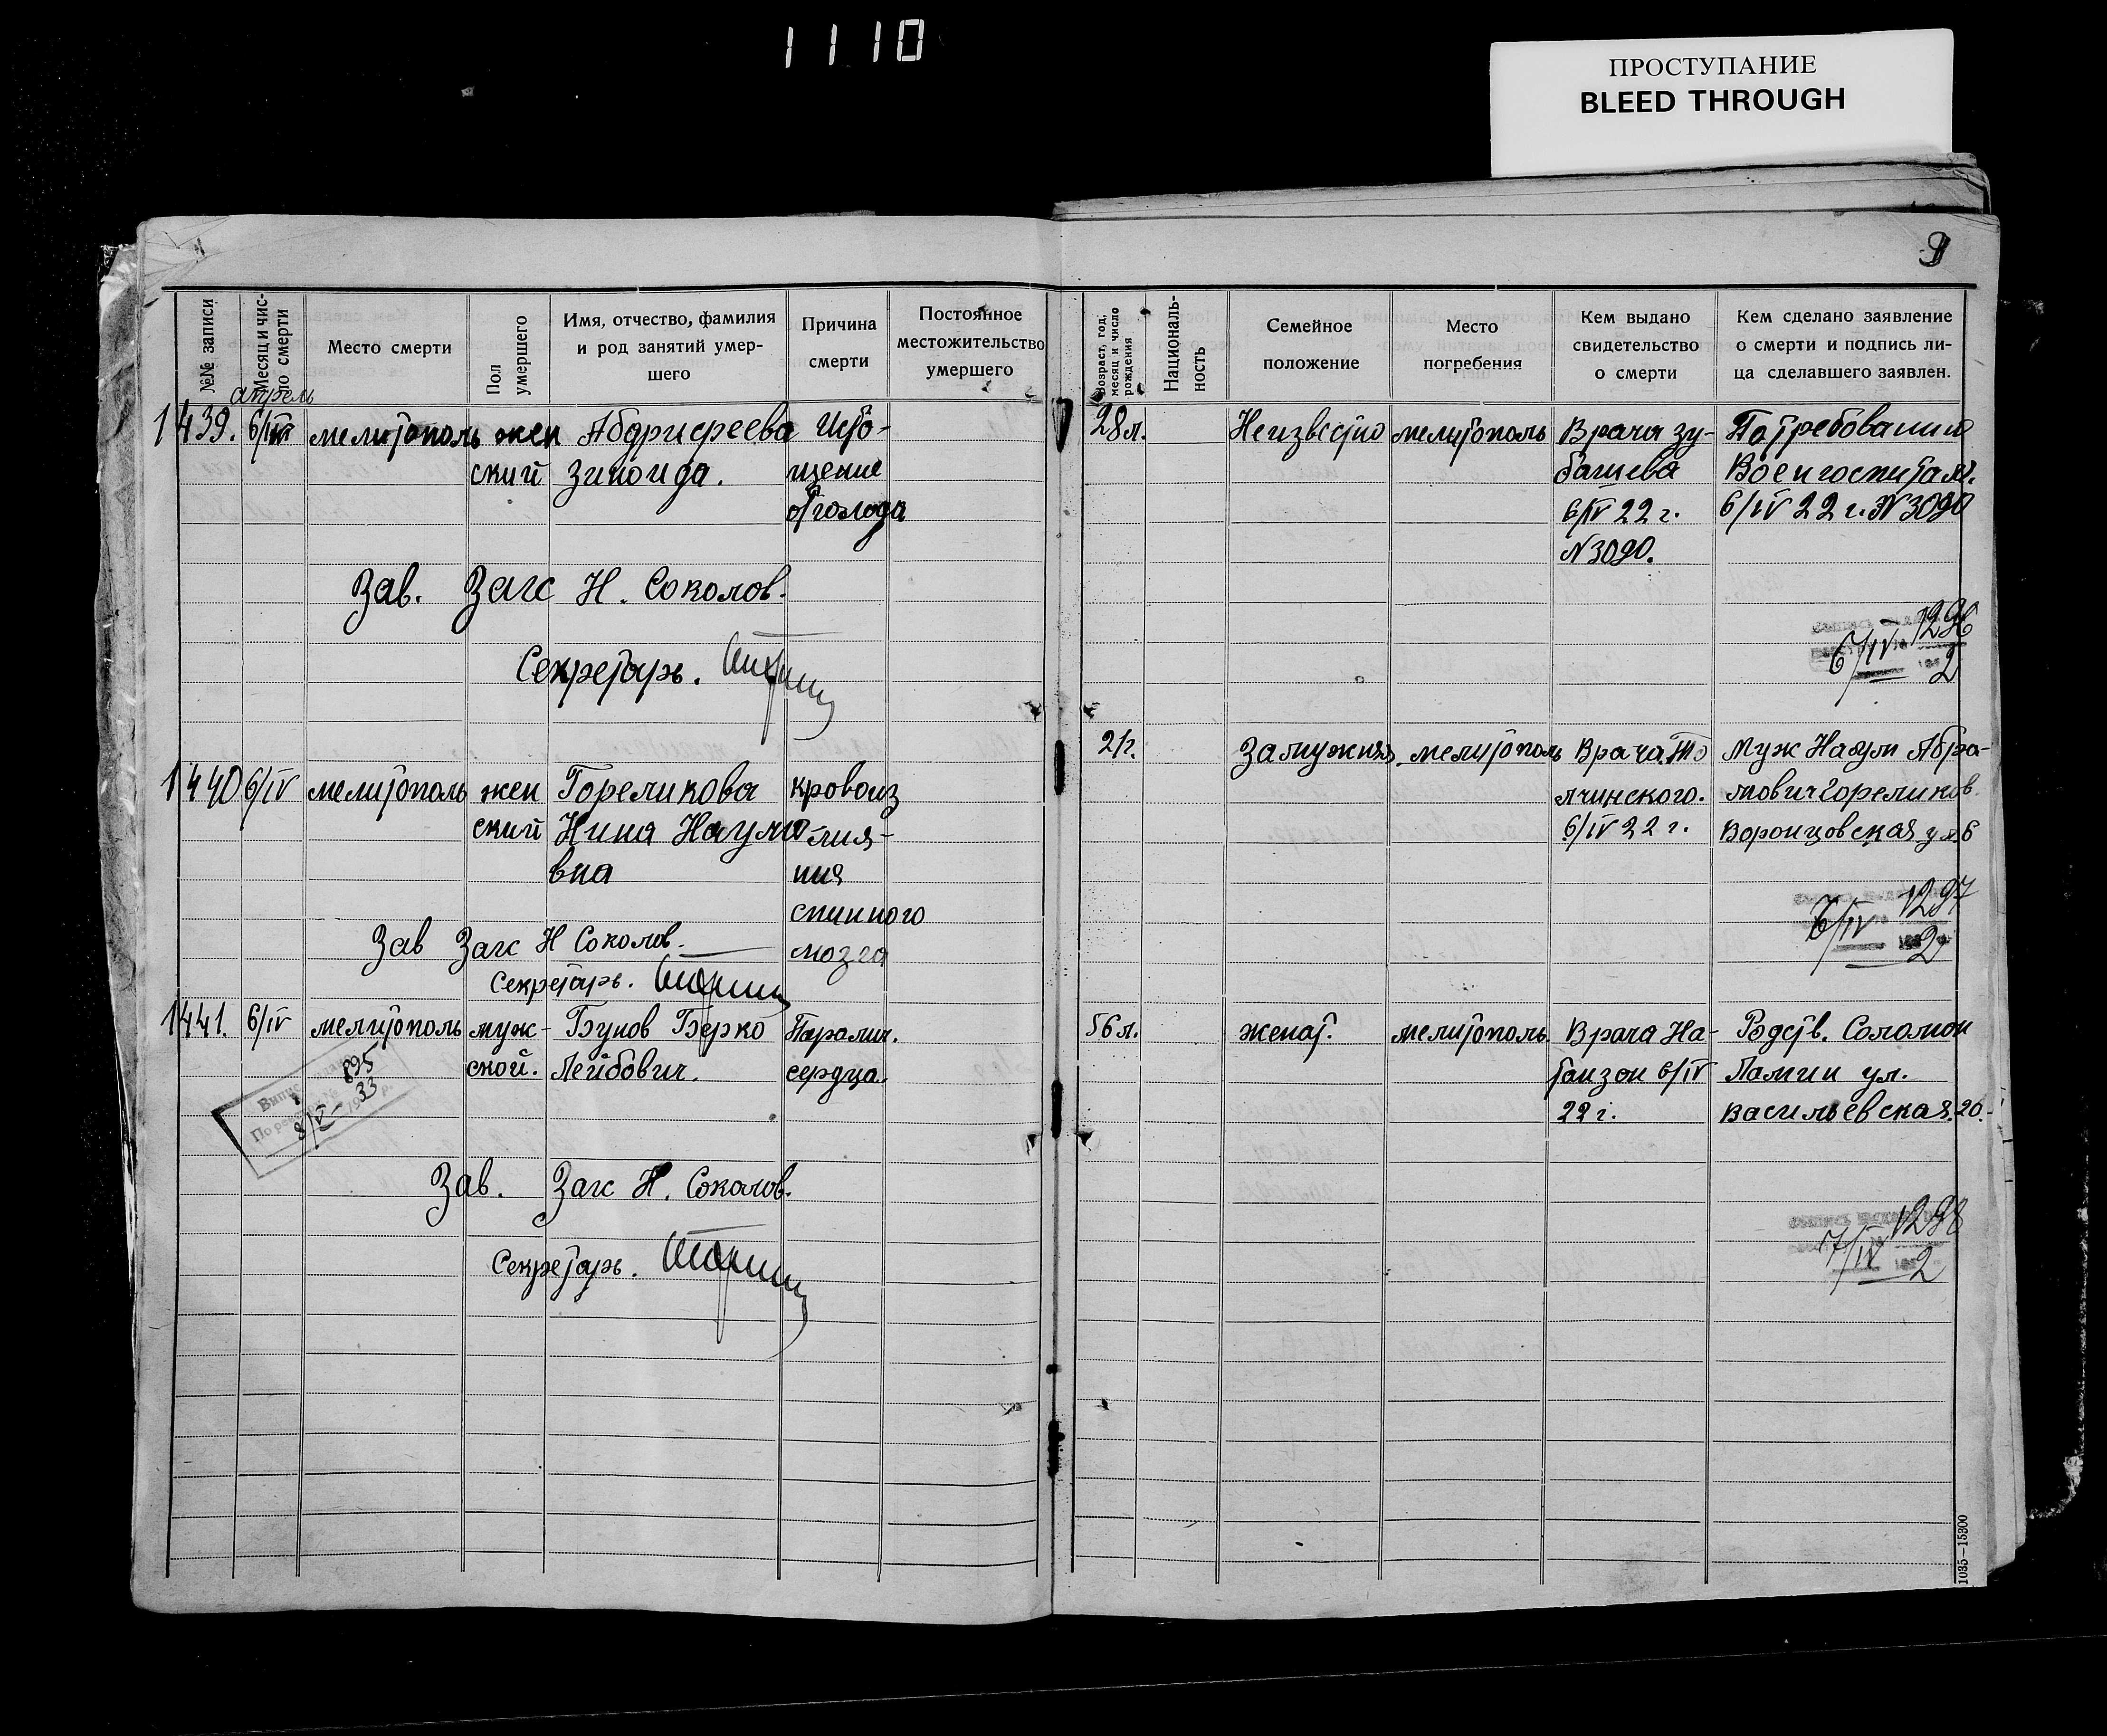 1110
ПРОСТУПАНИЕ
BLEED THROUGH
9
№№ записи
Месяц и чис-
ло смерти
Место смерти
Пол
умершего
Имя, отчество, фамилия
и род занятий умер-
шего
Причина
смерти
Постоянное
местожительство
умершего
Возраст, год,
месяц и число
рождения
Националь-
ность
Семейное
положение
Место
погребения
Кем выдано
свидетельство
о смерти
Кем сделано заявление
о смерти и подпись ли-
ца сделавшего заявлен.
апрель
1439. 6/IV мелитополь жен Исто- 28 л. Неизвестно мелитополь Врача зу- По требованию
ский Зиноида. щение башева Военгоспиталя.
от голода 6/IV 22 г. 6/IV 22 г. N 3090
N 3090.
Зав. Загс Н. Соколов.
Секретарь.
1296
6/IV 2
21г. Замужняя. мелитополь Врача Муж Наум Абра-
1440 6/IV мелитополь жен Гореликова кровоиз лчинского. мович Гореликов
ский Нина Наумо лия- 6/IV 22 г. Воронцовская ул. 6
вна ния
спинного
Зав Загс Н Соколов. мозга
1297
6/IV 2
Секретарь.
1441. 6/IV мелитополь муж- Бунов Берко Паралич. 56 л. женат. мелитополь. Врача На- Родств. Соломон
ской. Лейбович. сердца. танзон 6/IV Ламин ул.
22 г. Васильевская. 20.
895
8/V-33
Зав. Загс Н. Соколов.
Секретарь.
1298
7/IV 2
1035—15300